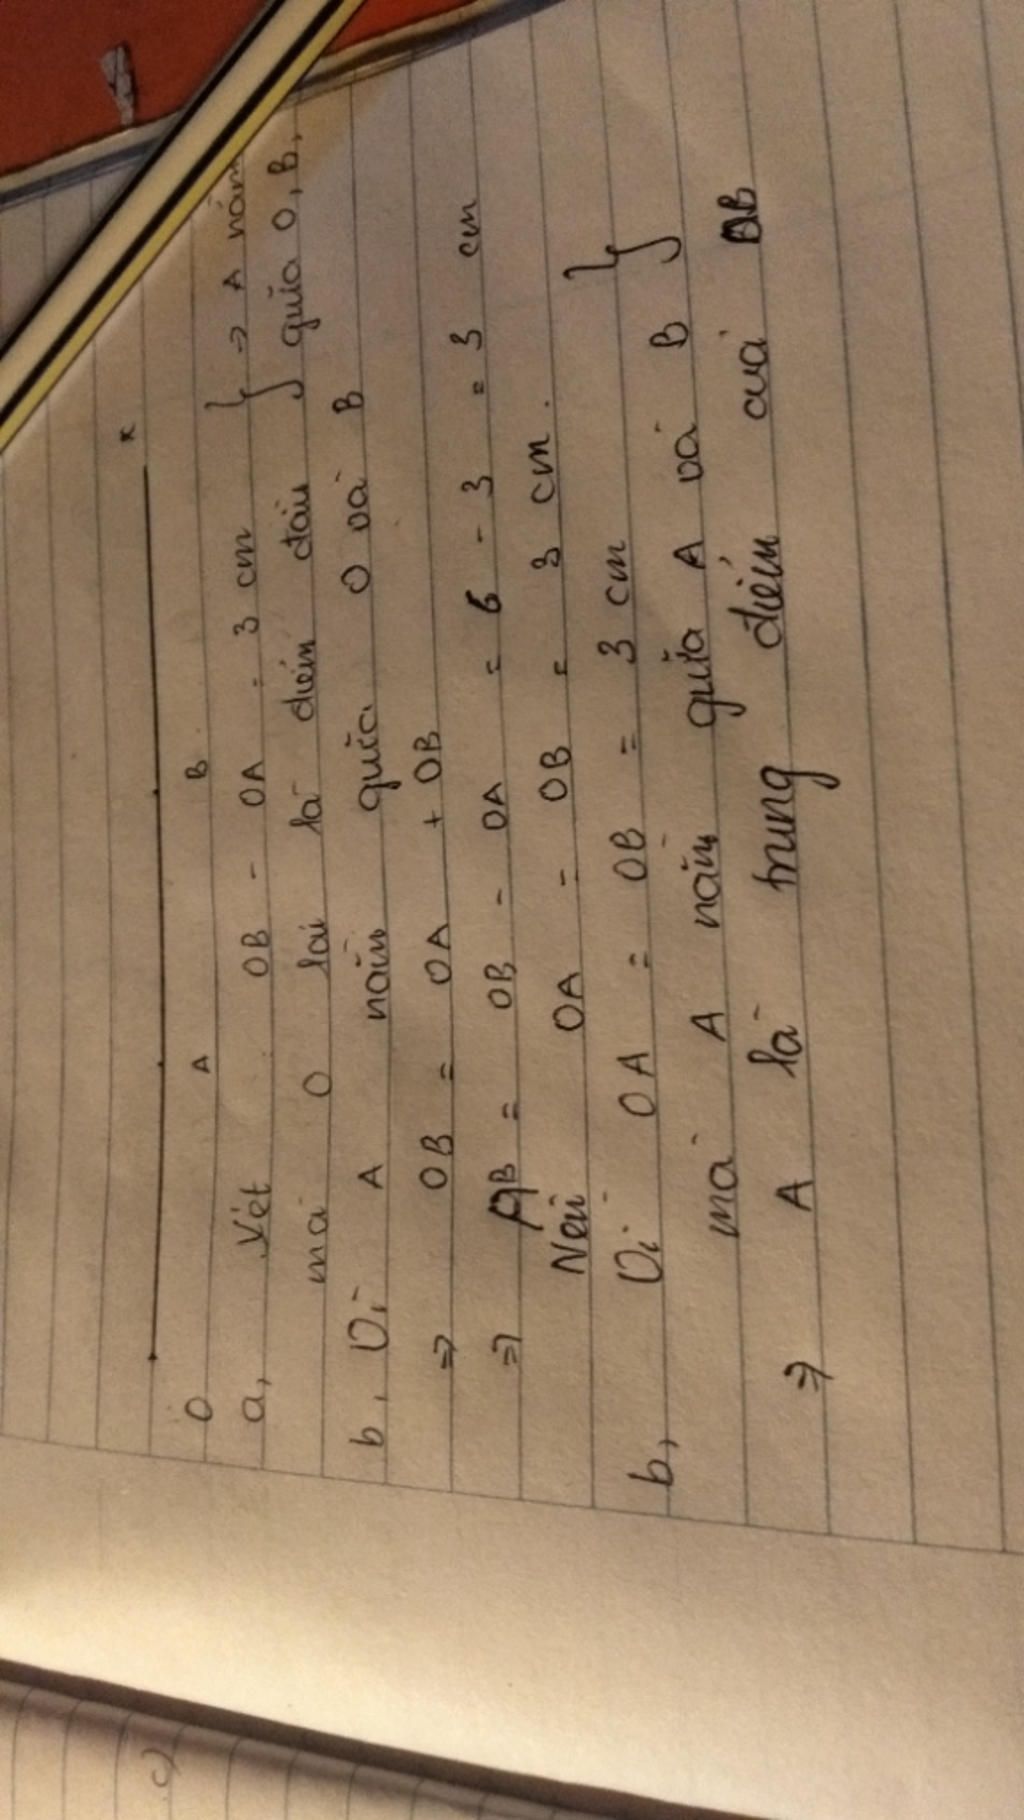 x
O A B
a, Xét OB - OA = 3 cm } → A nằm
mà O lại là điểm đầu giữa O, B,
b, Vì A nằm giữa O và B
⇒ OB = OA + OB
⇒ AB = OB - OA = 6 - 3 = 3 cm
Nên OA = OB = 3 cm.
b, Vì OA = OB = 3 cm }
mà A nằm giữa A và B
⇒ A là trung điểm của OB
c)